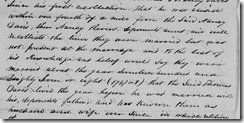 since his first recollection. That he was raised
within one fourth of a mile from the said Nancy
Davis, then Nancy Kerns, deponents aunt, and well
recollects the time they were married but was
not present at the marriage and to the best of
his knowledge and belief would say they were
married about the year Seventeen hundred and
Eighty Seven or eight (1787 or 8) that the said Thomas
Davis lived the year before he was married with
this deponents father, and has known them as
husband and wife ever since in which relation